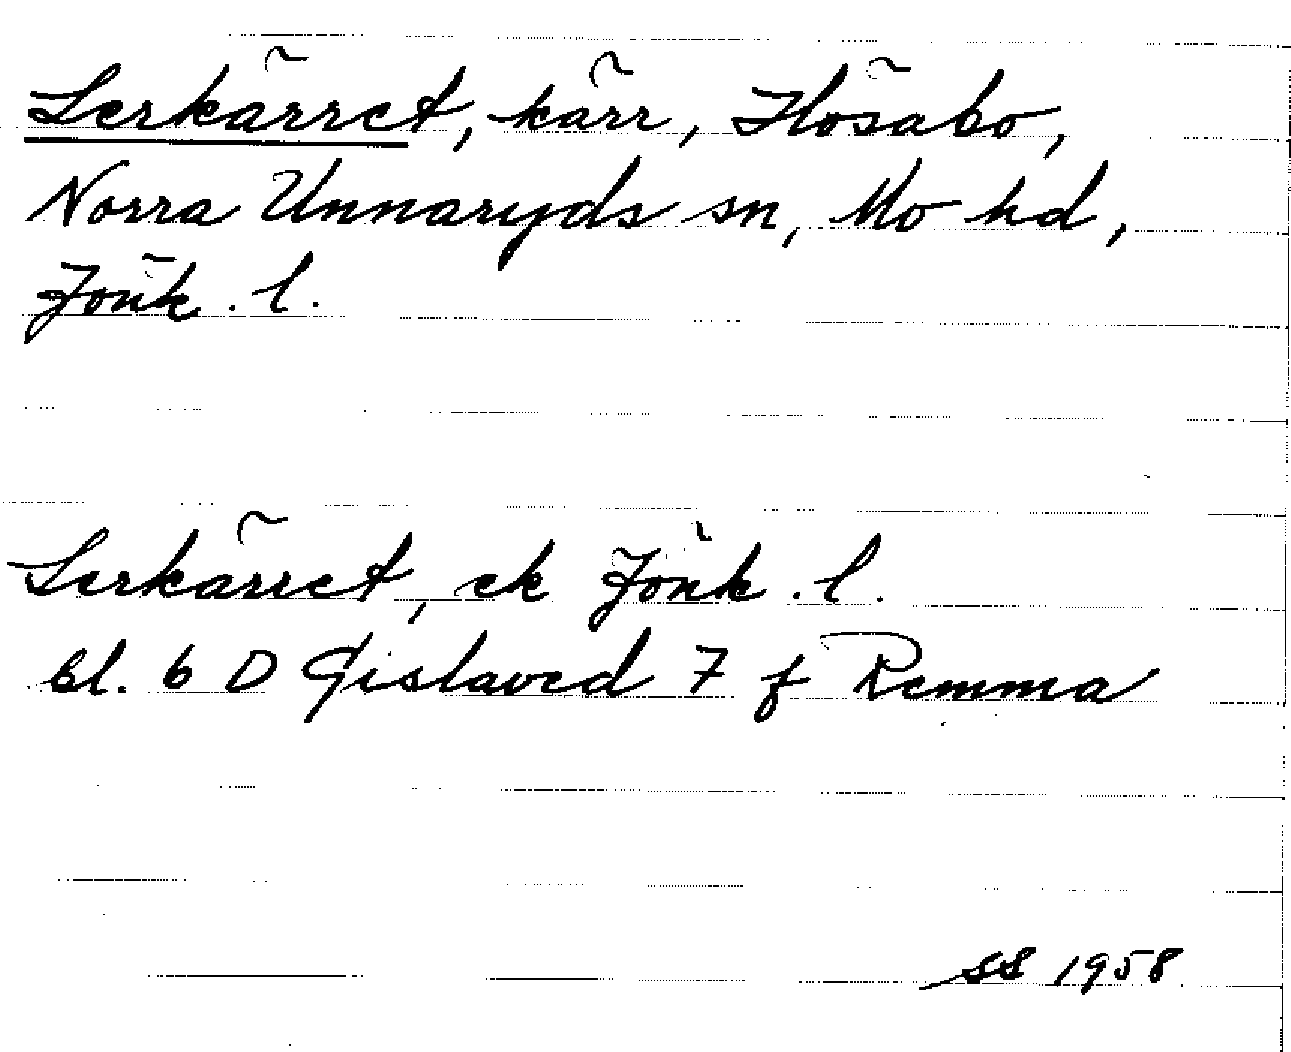 Lerkärret, kärr, Flösabo,
Norra Unnaryds sn, Mo hd,
Jönk. l.
Lerkärret, ek Jönk. l.
bl. 6 D Gislaved 7 f Remma
SS 1958